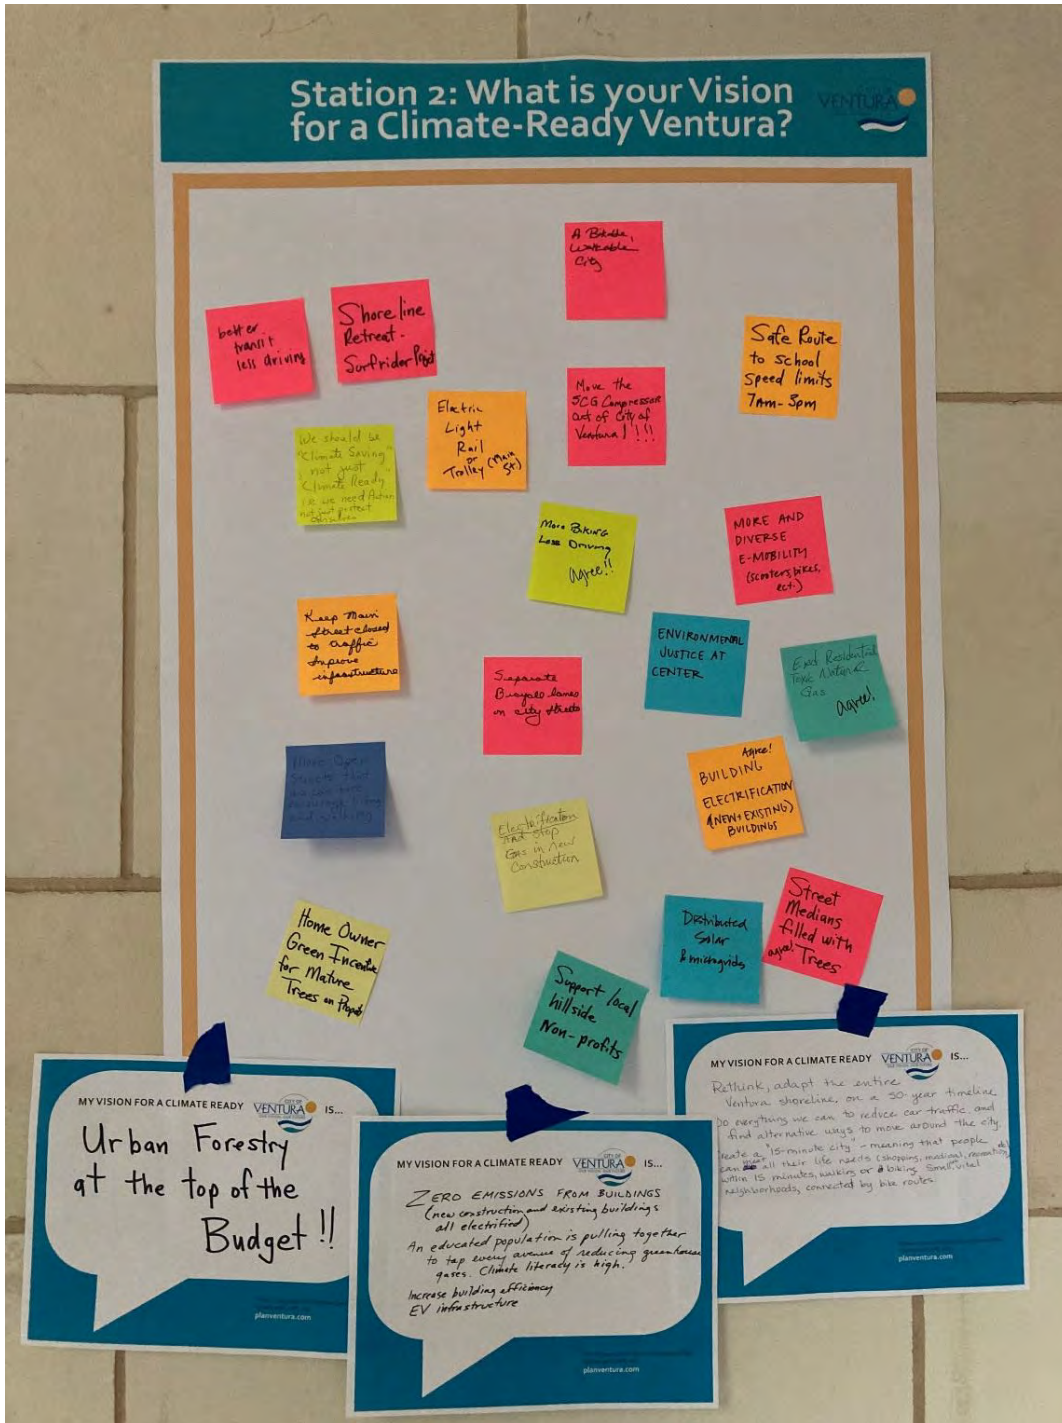 Station 2: What is your Vision
for a Climate-Ready Ventura?
CITY OF
VENTURA
A Bikable,
Walkable
City
better
transit
less driving
Shoreline
Retreat.
Surfrider Pojot
Safe Route
to school
speed limits
7AM-3pm
Electric
Light
Rail
or
Trolley (Main
St.)
Move the
SCG Compressor
out of City of
Ventura!!!!
We should be
"Climate Saving"
not just
"Climate Ready"
i.e. we need Action
not just protect
ourselves
More Biking
Less Driving
agree!!
MORE AND
DIVERSE
E-MOBILITY
(scooters, bikes,
ect.)
Keep Main
Street closed
to traffic
Improve
infrastructure
Separate
Bicycle lanes
on city streets
ENVIRONMENAL
JUSTICE AT
CENTER
End Residential
Toxic Natural
Gas
agree!
More Open
Streets that
are car free,
encourage biking
and walking
Agree!
BUILDING
ELECTRIFICATION
(NEW + EXISTING)
BUILDINGS
Electrification
AND Stop
Gas in new
Construction
Home Owner
Green Incentive
for Mature
Trees on Propty
Distributed
Solar
& microgrids
Street
Medians
filled with
agree! Trees
Support local
hillside
Non-profits
MY VISION FOR A CLIMATE READY CITY OF VENTURA IS...
Urban Forestry
at the top of the
Budget!!
planventura.com
MY VISION FOR A CLIMATE READY CITY OF VENTURA IS...
ZERO EMISSIONS FROM BUILDINGS
(new construction and existing buildings
all electrified)
An educated population is pulling together
to tap every avenue of reducing greenhouse
gases. Climate literacy is high.
Increase building efficiency
EV infrastructure
planventura.com
MY VISION FOR A CLIMATE READY CITY OF VENTURA IS...
Rethink, adapt the entire
Ventura shoreline, on a 50-year timeline
Do everything we can to reduce car traffic and
find alternative ways to move around the city.
Create a "15-minute city" - meaning that people
can meet all their life needs (shopping, medical, recreation, etc)
within 15 minutes, walking or biking. Small, vital
neighborhoods, connected by bike routes.
planventura.com